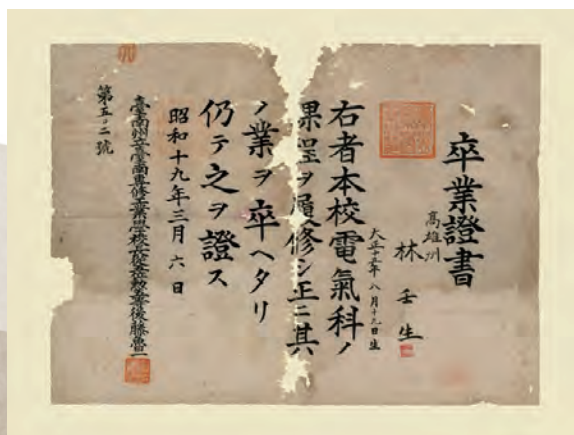 卒業證書
高雄州
林壬生
大正十五年八月十九日生
右者本校電氣科ノ
課程ヲ履修シ正ニ其
ノ業ヲ卒ヘタリ
仍テ之ヲ證ス
昭和十九年三月六日
臺南州立臺南專修工業學校長
後藤魯一
第五〇二號